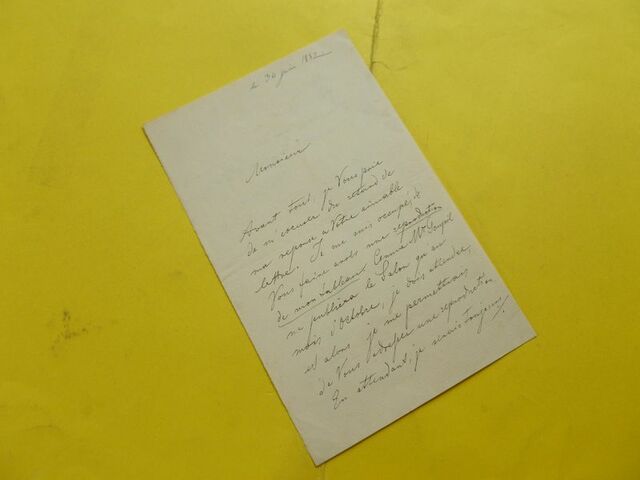 le 30 juin 1882
Monsieur
Avant tout, je Vous prie
de m'excuser du retard de
ma reponse a Votre aimable
lettre. Je me suis occupé, à
Vous faire avoir une reproduction
de mon tableau. Comme Mr Goupil
ne publiera le Salon qu'au
mois d'octobre, je dois attendre,
et alors je me permettrai,
de Vous adresser une reproduction
En attendant, je serais toujours